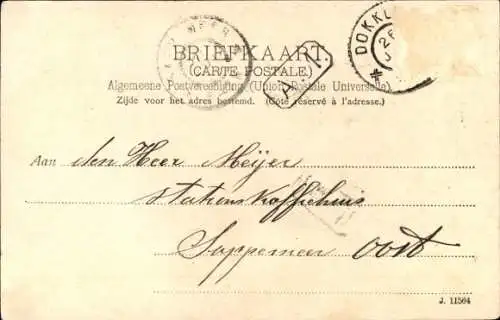 DOKK
BRIEFKAART.
(CARTE POSTALE.)
Algemeene Postvereeniging (Union Postale Universelle)
Zijde voor het adres bestemd. (Côté réservé à l'adresse.)
Aan den Heer Meijer
Stations Koffiehuis
Sappemeer Oost
J. 11564